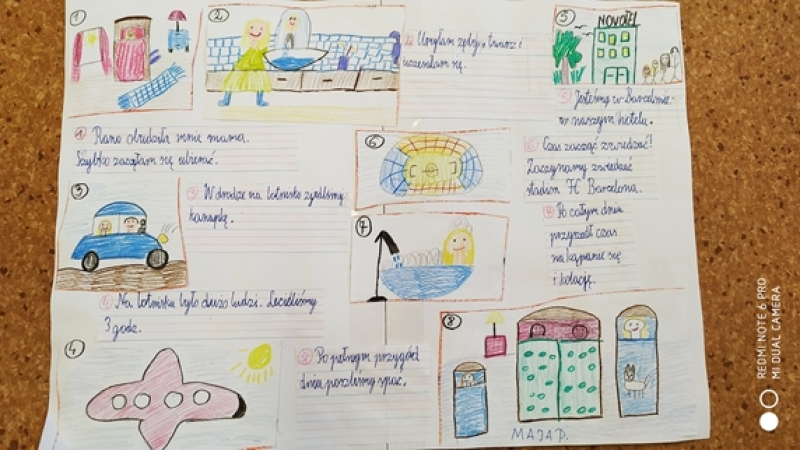 1
2
2. Umyłam zęby, twarz i
uczesałam się.
5
NOVOTEL
5. Jesteśmy w Barcelonie
w naszym hotelu.
1 Rano obudziła mnie mama.
Szybko zaczęłam się ubierać.
3
3 W drodze na lotnisko zjedliśmy
kanapkę.
6
6 Czas zacząć zwiedzać!
Zaczynamy zwiedzać
stadion FC Barcelona.
7
Po całym dniu
przyszedł czas
na kąpanie się
i kolację.
4 Na lotnisku było dużo ludzi. Lecieliśmy
3 godz.
4
8 Po pełnym przygód
dniu poszliśmy spać.
8
MAJA P.
REDMI NOTE 6 PRO
MI DUAL CAMERA